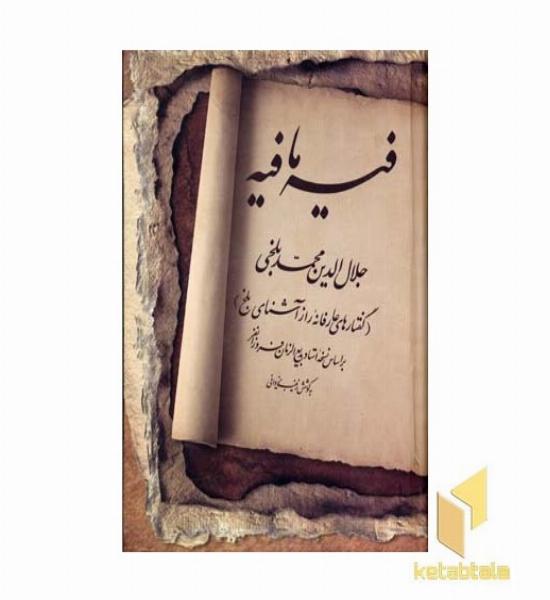 فیه ما فیه
جلال الدین محمد بلخی
(گفتارهای عارفانهٔ راز آشنای بلخ)
بر اساس نسخه استاد بدیع الزمان فروزانفر
به کوشش زینب یزدانی
ketabtala